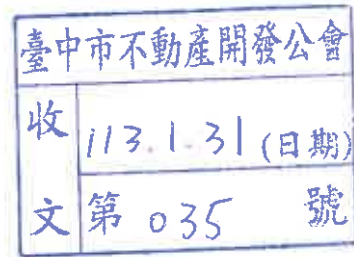 臺中市不動產開發公會
收文
113.1.31(日期)
第035號